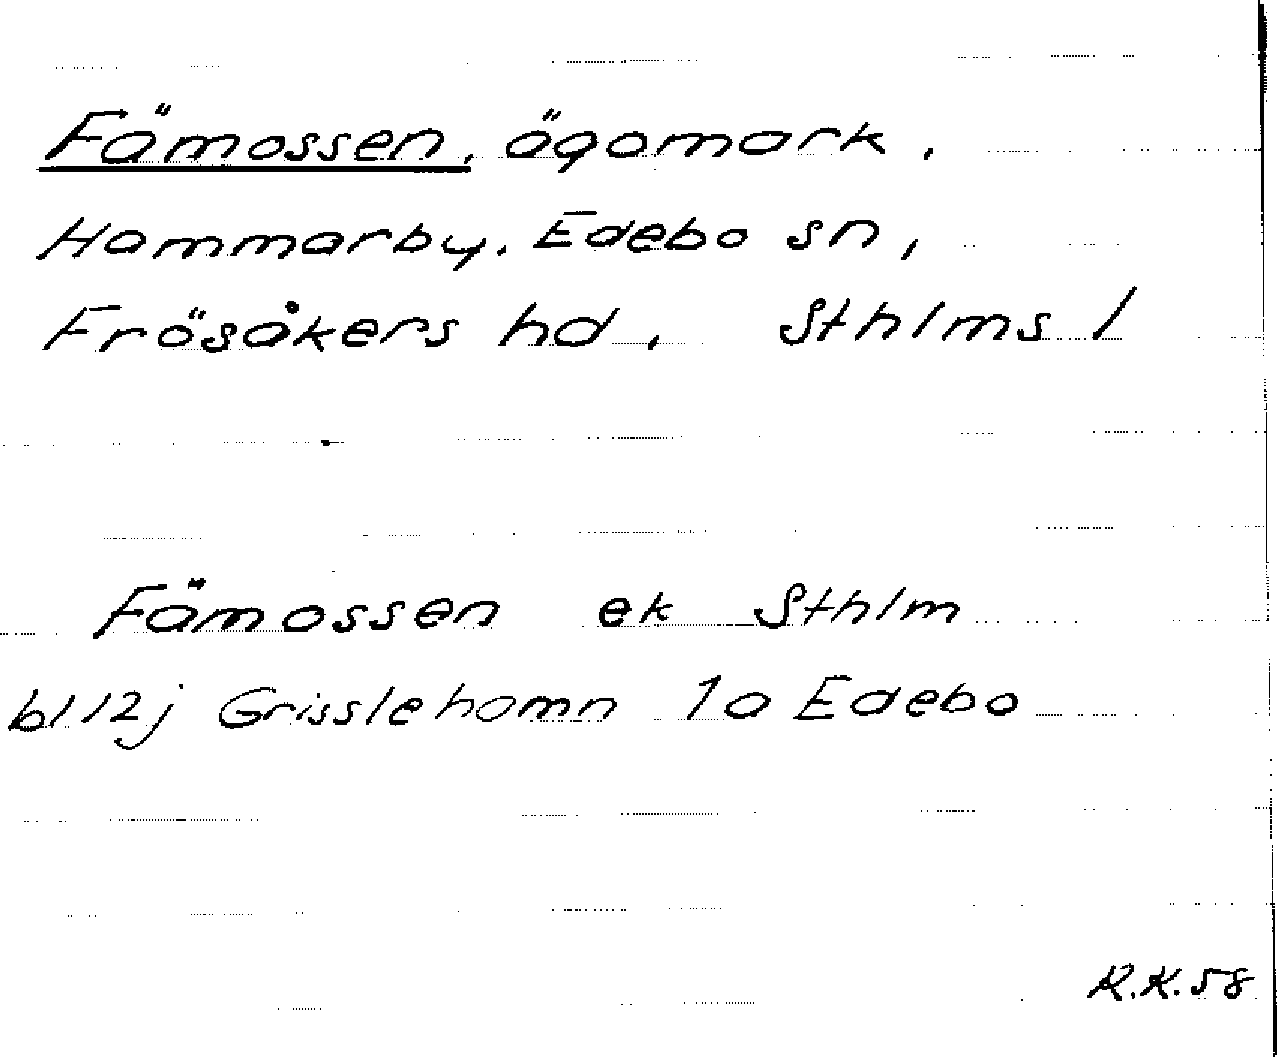 Fämossen, ägomark,
Hammarby, Edebo sn,
Frösåkers hd, Sthlms l
Fämossen ek Sthlm
bl 12j Grisslehamn 1a Edebo
R.K. 58